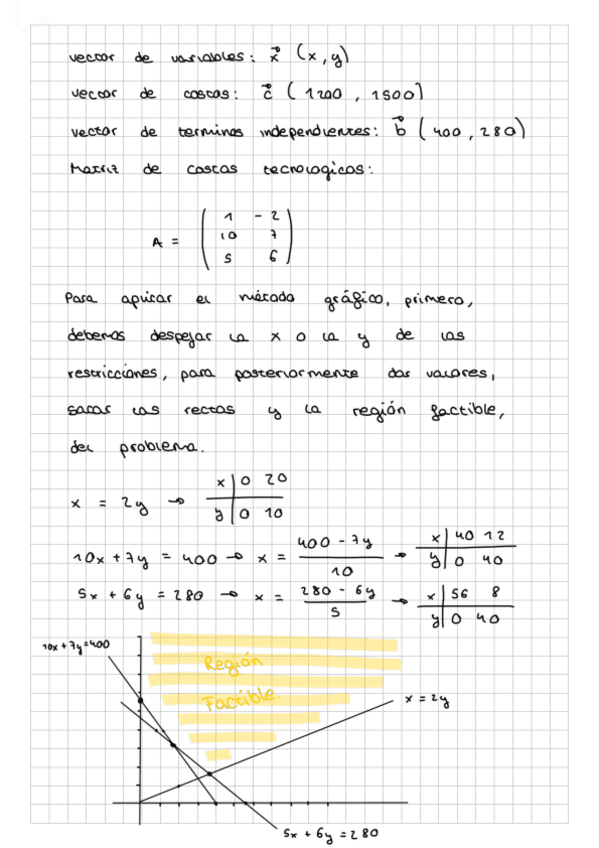 vector de variables: x⃗ (x, y)
vector de costos: c⃗ (1200, 1500)
vector de terminos independientes: b⃗ (400, 280)
Matriz de costos tecnologicos:
A = ( 1 -2
10 7
5 6 )
Para aplicar el método gráfico, primero,
debemos despejar la x o la y de las
restricciones, para posteriormente dar valores,
sacar las rectas y la región factible,
del problema.
x = 2y → x | 0 20
y | 0 10
10x + 7y = 400 → x = (400 - 7y) / 10 → x | 40 12
y | 0 40
5x + 6y = 280 → x = (280 - 6y) / 5 → x | 56 8
y | 0 40
10x + 7y = 400
Región
Factible.
x = 2y
5x + 6y = 280